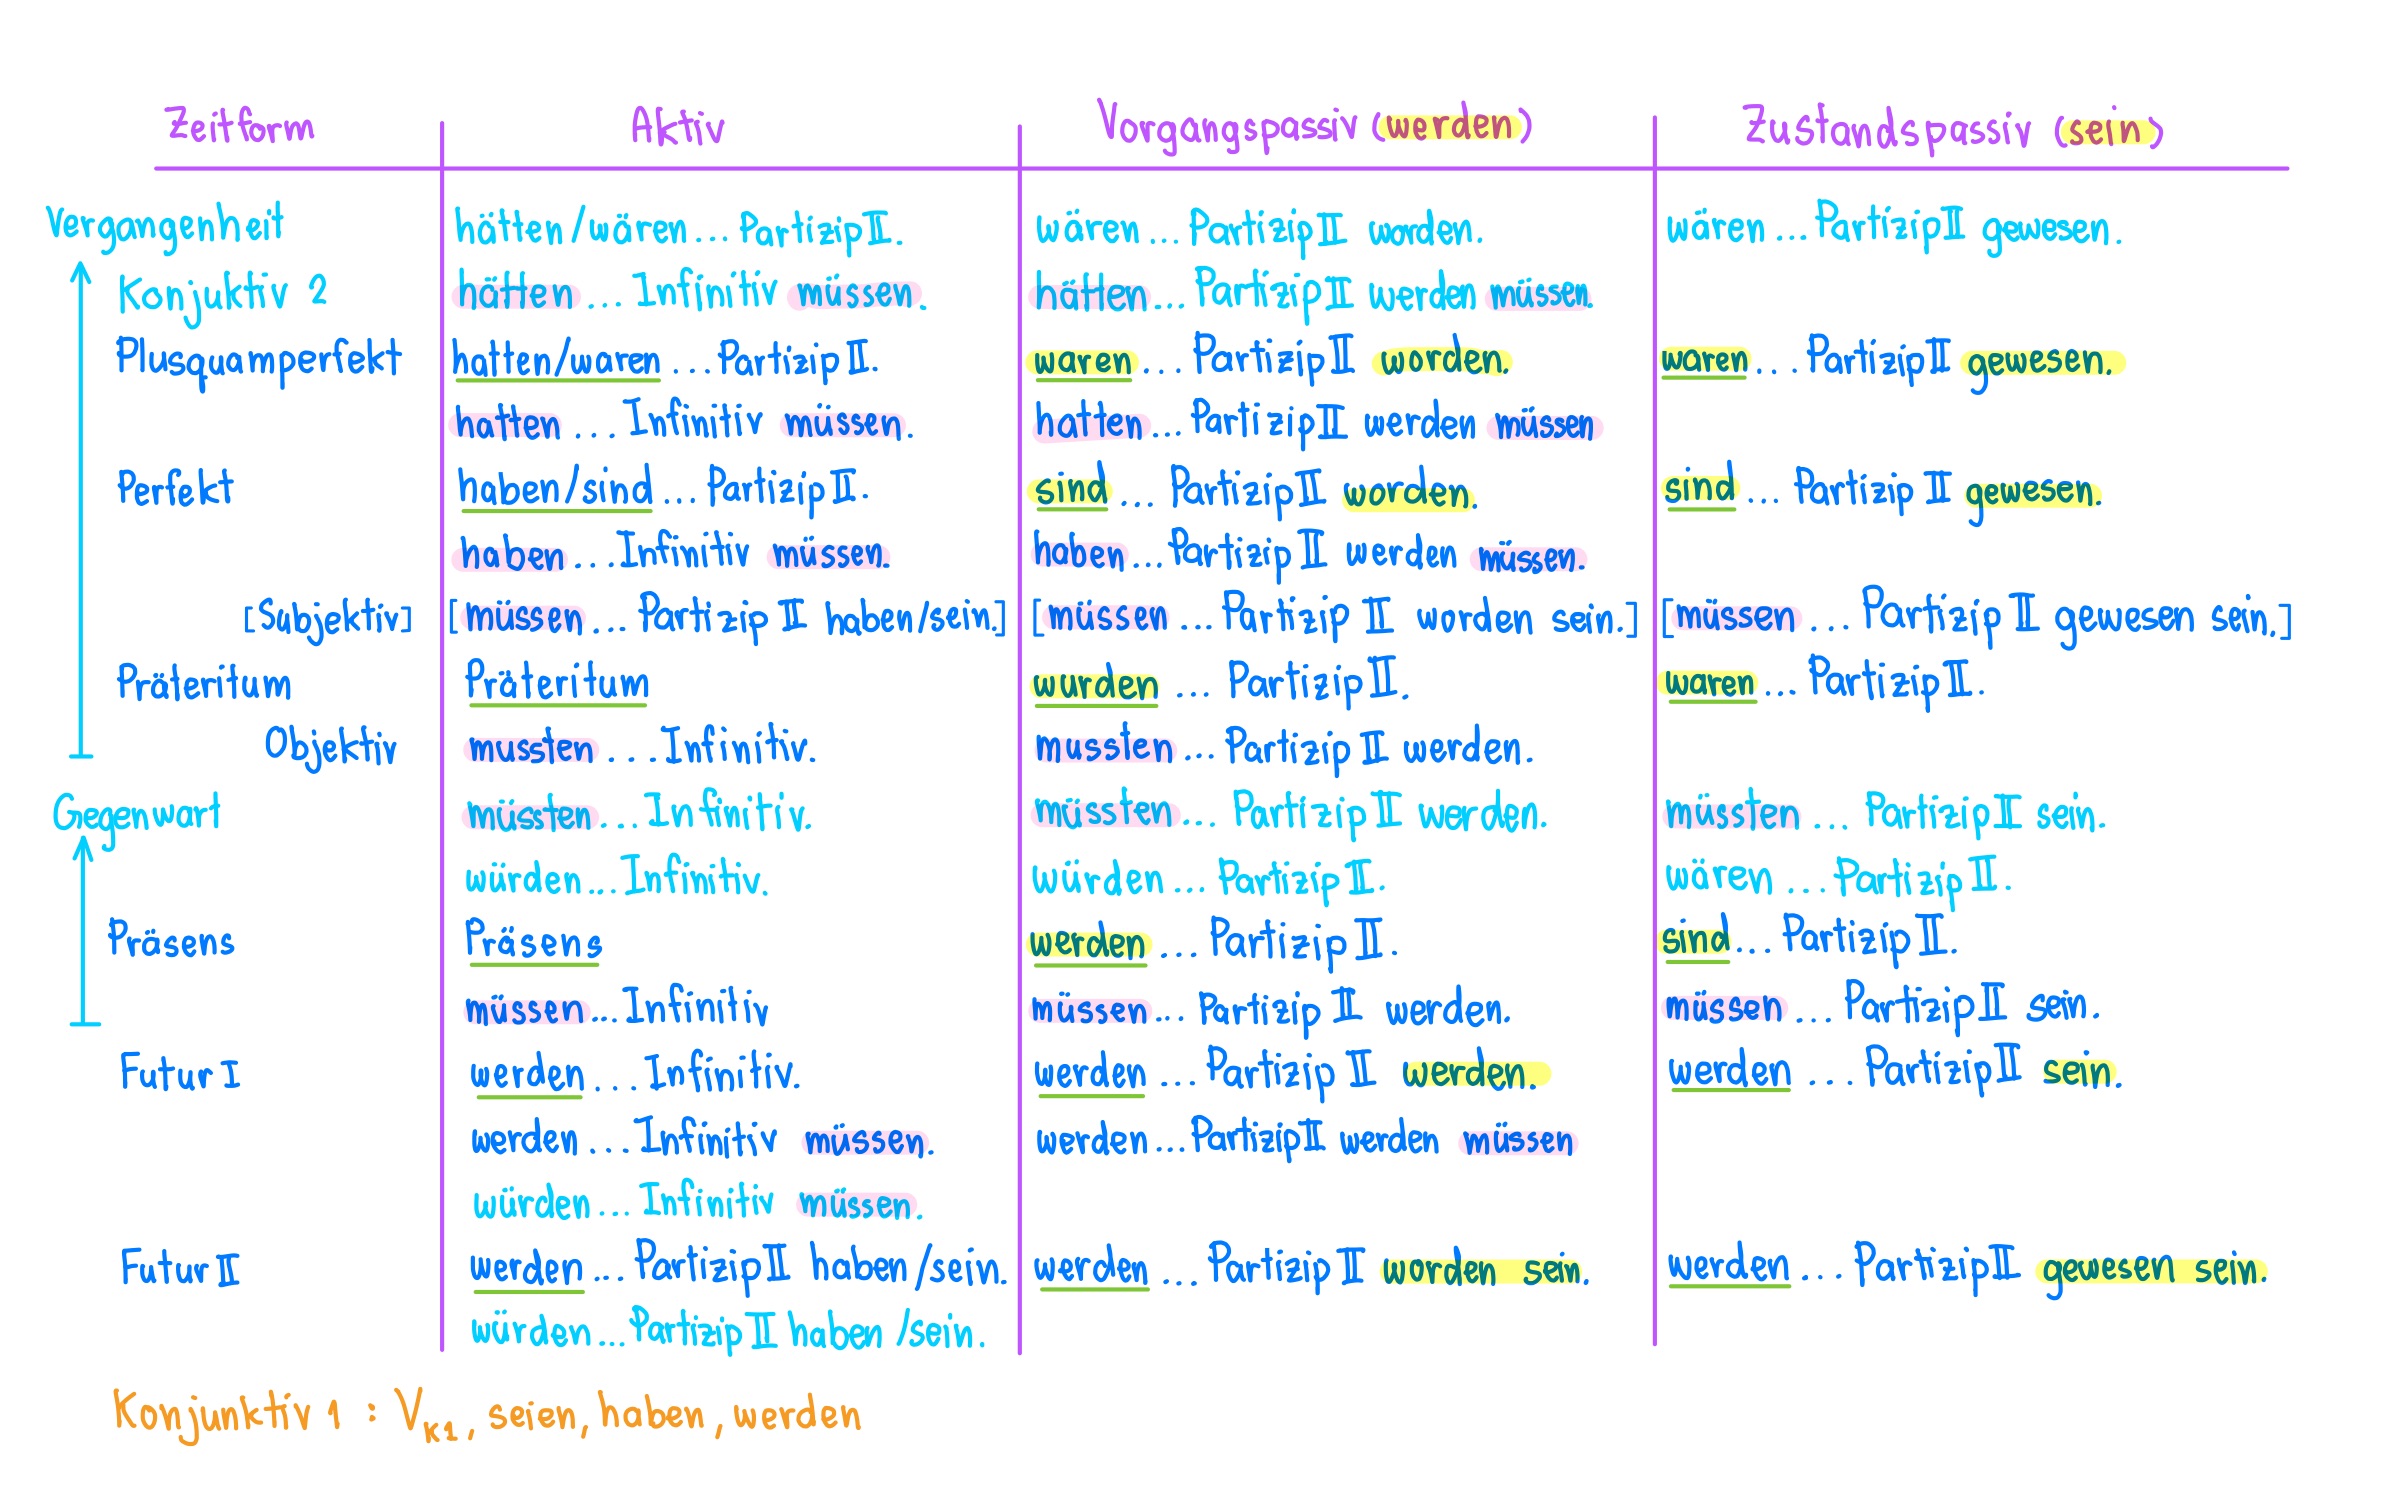 Zeitform Aktiv Vorgangspassiv (werden) Zustandspassiv (sein)
Vergangenheit hätten/wären ... Partizip II. wären ... Partizip II worden. wären ... Partizip II gewesen.
Konjuktiv 2 hätten ... Infinitiv müssen. hätten ... Partizip II werden müssen.
Plusquamperfekt hatten/waren ... Partizip II. waren ... Partizip II worden. waren ... Partizip II gewesen.
hatten ... Infinitiv müssen. hatten ... Partizip II werden müssen
Perfekt haben/sind ... Partizip II. sind ... Partizip II worden. sind ... Partizip II gewesen.
haben ... Infinitiv müssen. haben ... Partizip II werden müssen.
[Subjektiv] [müssen ... Partizip II haben/sein.] [müssen ... Partizip II worden sein.] [müssen ... Partizip II gewesen sein.]
Präteritum Präteritum wurden ... Partizip II. waren ... Partizip II.
Objektiv mussten ... Infinitiv. mussten ... Partizip II werden.
Gegenwart müssten ... Infinitiv. müssten ... Partizip II werden. müssten ... Partizip II sein.
würden ... Infinitiv. würden ... Partizip II. wären ... Partizip II.
Präsens Präsens werden ... Partizip II. sind ... Partizip II.
müssen ... Infinitiv müssen ... Partizip II werden. müssen ... Partizip II sein.
Futur I werden ... Infinitiv. werden ... Partizip II werden. werden ... Partizip II sein.
werden ... Infinitiv müssen. werden ... Partizip II werden müssen
würden ... Infinitiv müssen.
Futur II werden ... Partizip II haben/sein. werden ... Partizip II worden sein. werden ... Partizip II gewesen sein.
würden ... Partizip II haben/sein.
Konjunktiv 1 : V_K1, seien, haben, werden